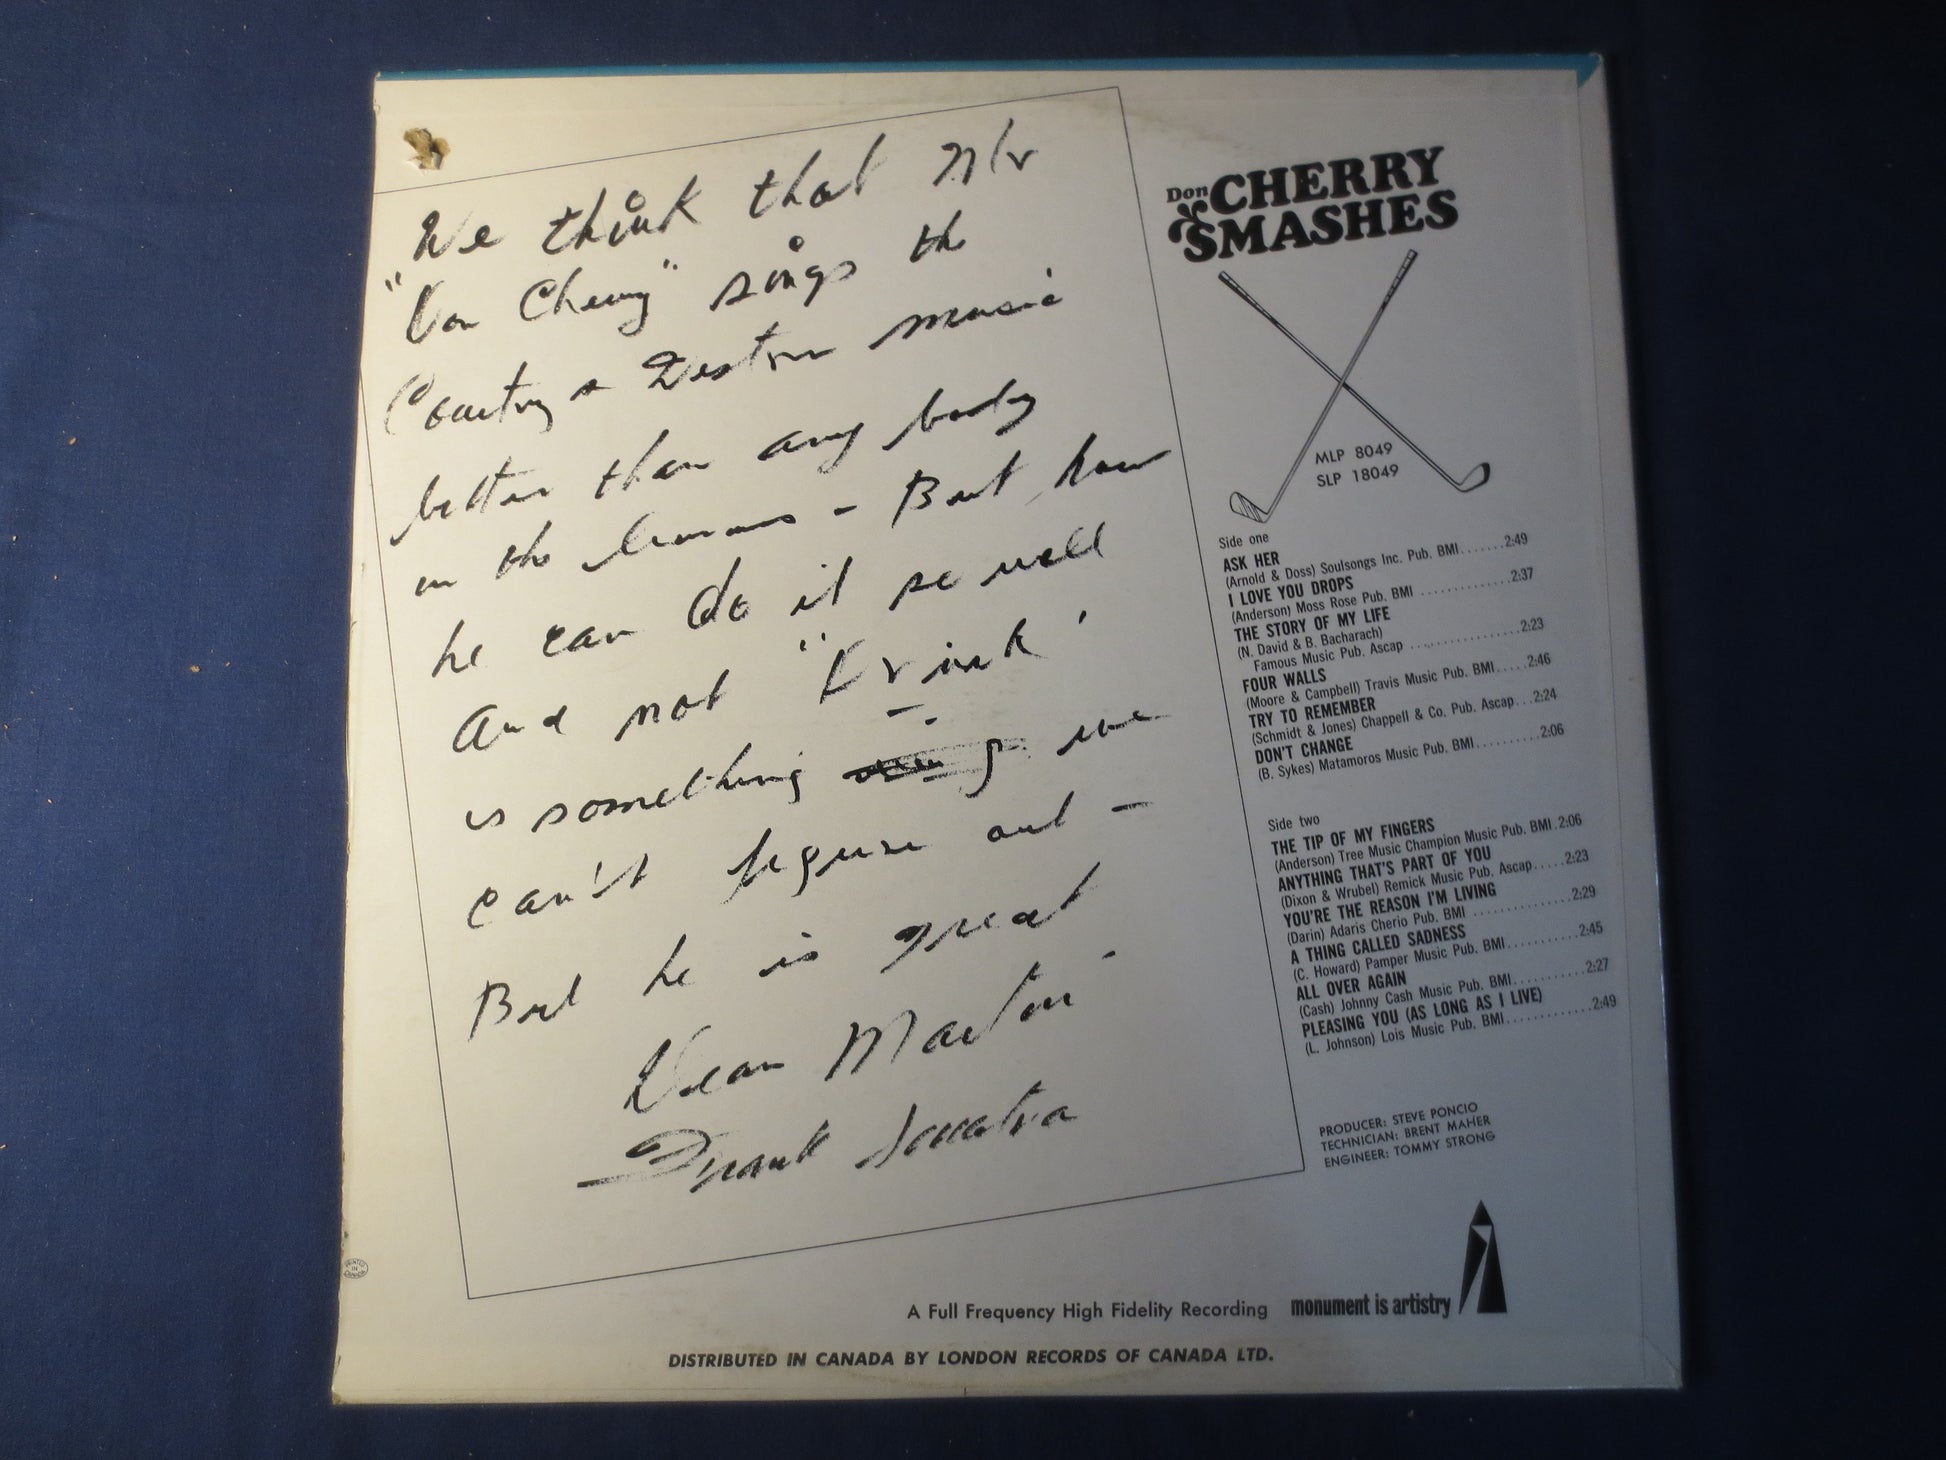 We think that Mr
"Don Cherry" sings the
Country & Western music
better than any body
in the - But how
he can do it so well
And not "Drink"
is something we
can't figure out -
But he is great
Dean Martin
Frank Sinatra
Don CHERRY
SMASHES
MLP 8049
SLP 18049
Side one
ASK HER
(Arnold & Doss) Soulsongs Inc. Pub. BMI.......2:49
I LOVE YOU DROPS
(Anderson) Moss Rose Pub. BMI ............2:37
THE STORY OF MY LIFE
(N. David & B. Bacharach)
Famous Music Pub. Ascap ..............2:23
FOUR WALLS
(Moore & Campbell) Travis Music Pub. BMI.....2:46
TRY TO REMEMBER
(Schmidt & Jones) Chappell & Co. Pub. Ascap...2:24
DON'T CHANGE
(B. Sykes) Matamoros Music Pub. BMI..........2:06
Side two
THE TIP OF MY FINGERS
(Anderson) Tree Music Champion Music Pub. BMI.2:06
ANYTHING THAT'S PART OF YOU
(Dixon & Wrubel) Remick Music Pub. Ascap.....2:23
YOU'RE THE REASON I'M LIVING
(Darin) Adaris Cherio Pub. BMI ...............2:29
A THING CALLED SADNESS
(C. Howard) Pamper Music Pub. BMI...........2:45
ALL OVER AGAIN
(Cash) Johnny Cash Music Pub. BMI...........2:27
PLEASING YOU (AS LONG AS I LIVE)
(L. Johnson) Lois Music Pub. BMI.............2:49
PRODUCER: STEVE PONCIO
TECHNICIAN: BRENT MAHER
ENGINEER: TOMMY STRONG
PRINTED IN CANADA
A Full Frequency High Fidelity Recording
monument is artistry
DISTRIBUTED IN CANADA BY LONDON RECORDS OF CANADA LTD.